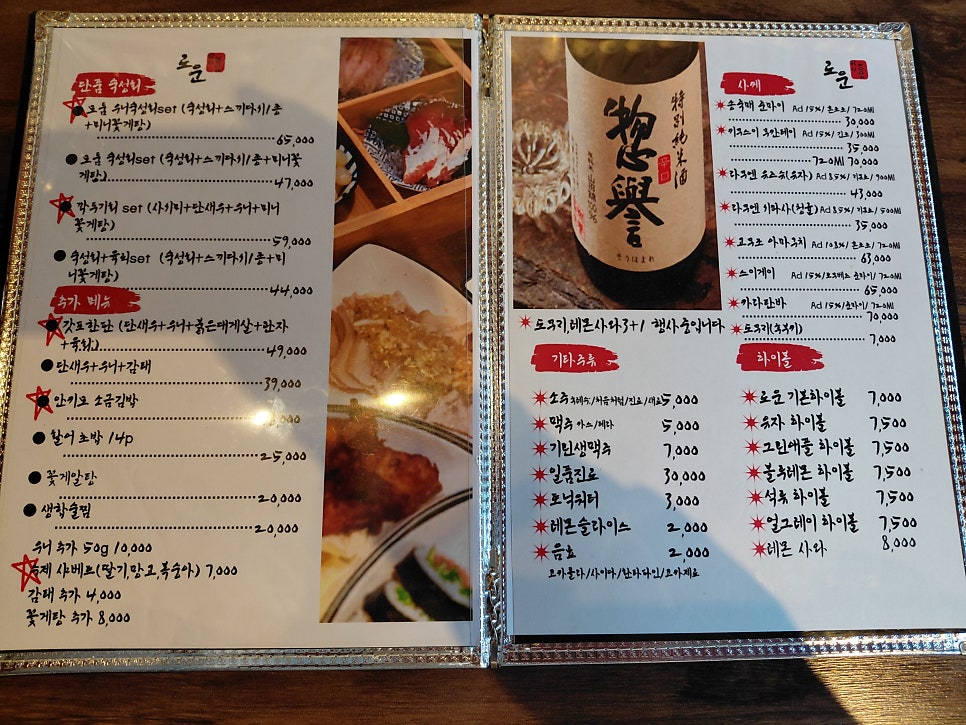 로운
단품 숙성회
로운 우니숙성회set (숙성회+스끼다시1종
+미니꽃게탕)
65,000
로운 숙성회set (숙성회+스끼다시1종+미니꽃
게탕)
47,000
각우기메 set (사시미+단새우+우니+미니
꽃게탕)
59,000
숙성회+육회set (숙성회+스끼다시1종+미
니꽃게탕)
44,000
추가 메뉴
갓포한판 (단새우+우니+붉은대게살+안자
+육회)
49,000
단새우+우니+감태
39,000
안키모 소금김밥
활어초밥 14p
25,000
꽃게알탕
20,000
생합술찜
20,000
우니 추가 50g 10,000
수제 샤베트(딸기,망고,복숭아) 7,000
감태 추가 4,000
꽃게탕 추가 8,000
特別純米酒
辛口
惣譽
そうほまれ
로운
사케
송죽매 준마이 Ad 15%/720Ml
30,000
Ad 15%/300Ml
35,000
720Ml 70,000
다누멘 유즈슈(유자) Ad 8.5%/900Ml
43,000
Ad 8.5%/500Ml
35,000
아마구치 Ad 10.3%/720Ml
63,000
스이게이 Ad 15%/720Ml
65,000
카라탄바 Ad 15%/준마이/720Ml
70,000
도쿠리
7,000
도쿠리,레몬사와3+1 행사중입니다
기타주류
소주 5,000
맥주 카스/테라 5,000
기린생맥주 7,000
일품진로 30,000
토닉워터 3,000
레몬슬라이스 2,000
음료 2,000
코카콜라/사이다/환타파인/코카제로
하이볼
로운 기본하이볼 7,000
유자 하이볼 7,500
그린애플 하이볼 7,500
블루레몬 하이볼 7,500
석류 하이볼 7,500
얼그레이 하이볼 7,500
레몬 사와 8,000